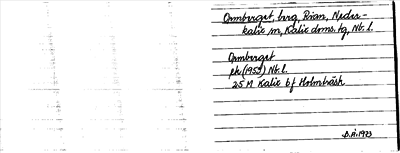 Ormberget, berg, Rian, Neder-
kalix sn, Kalix doms. tg, Nb. l.
Ormberget
ek (1952) Nb. l.
25 M Kalix bf Holmträsk
B.Å. 1973